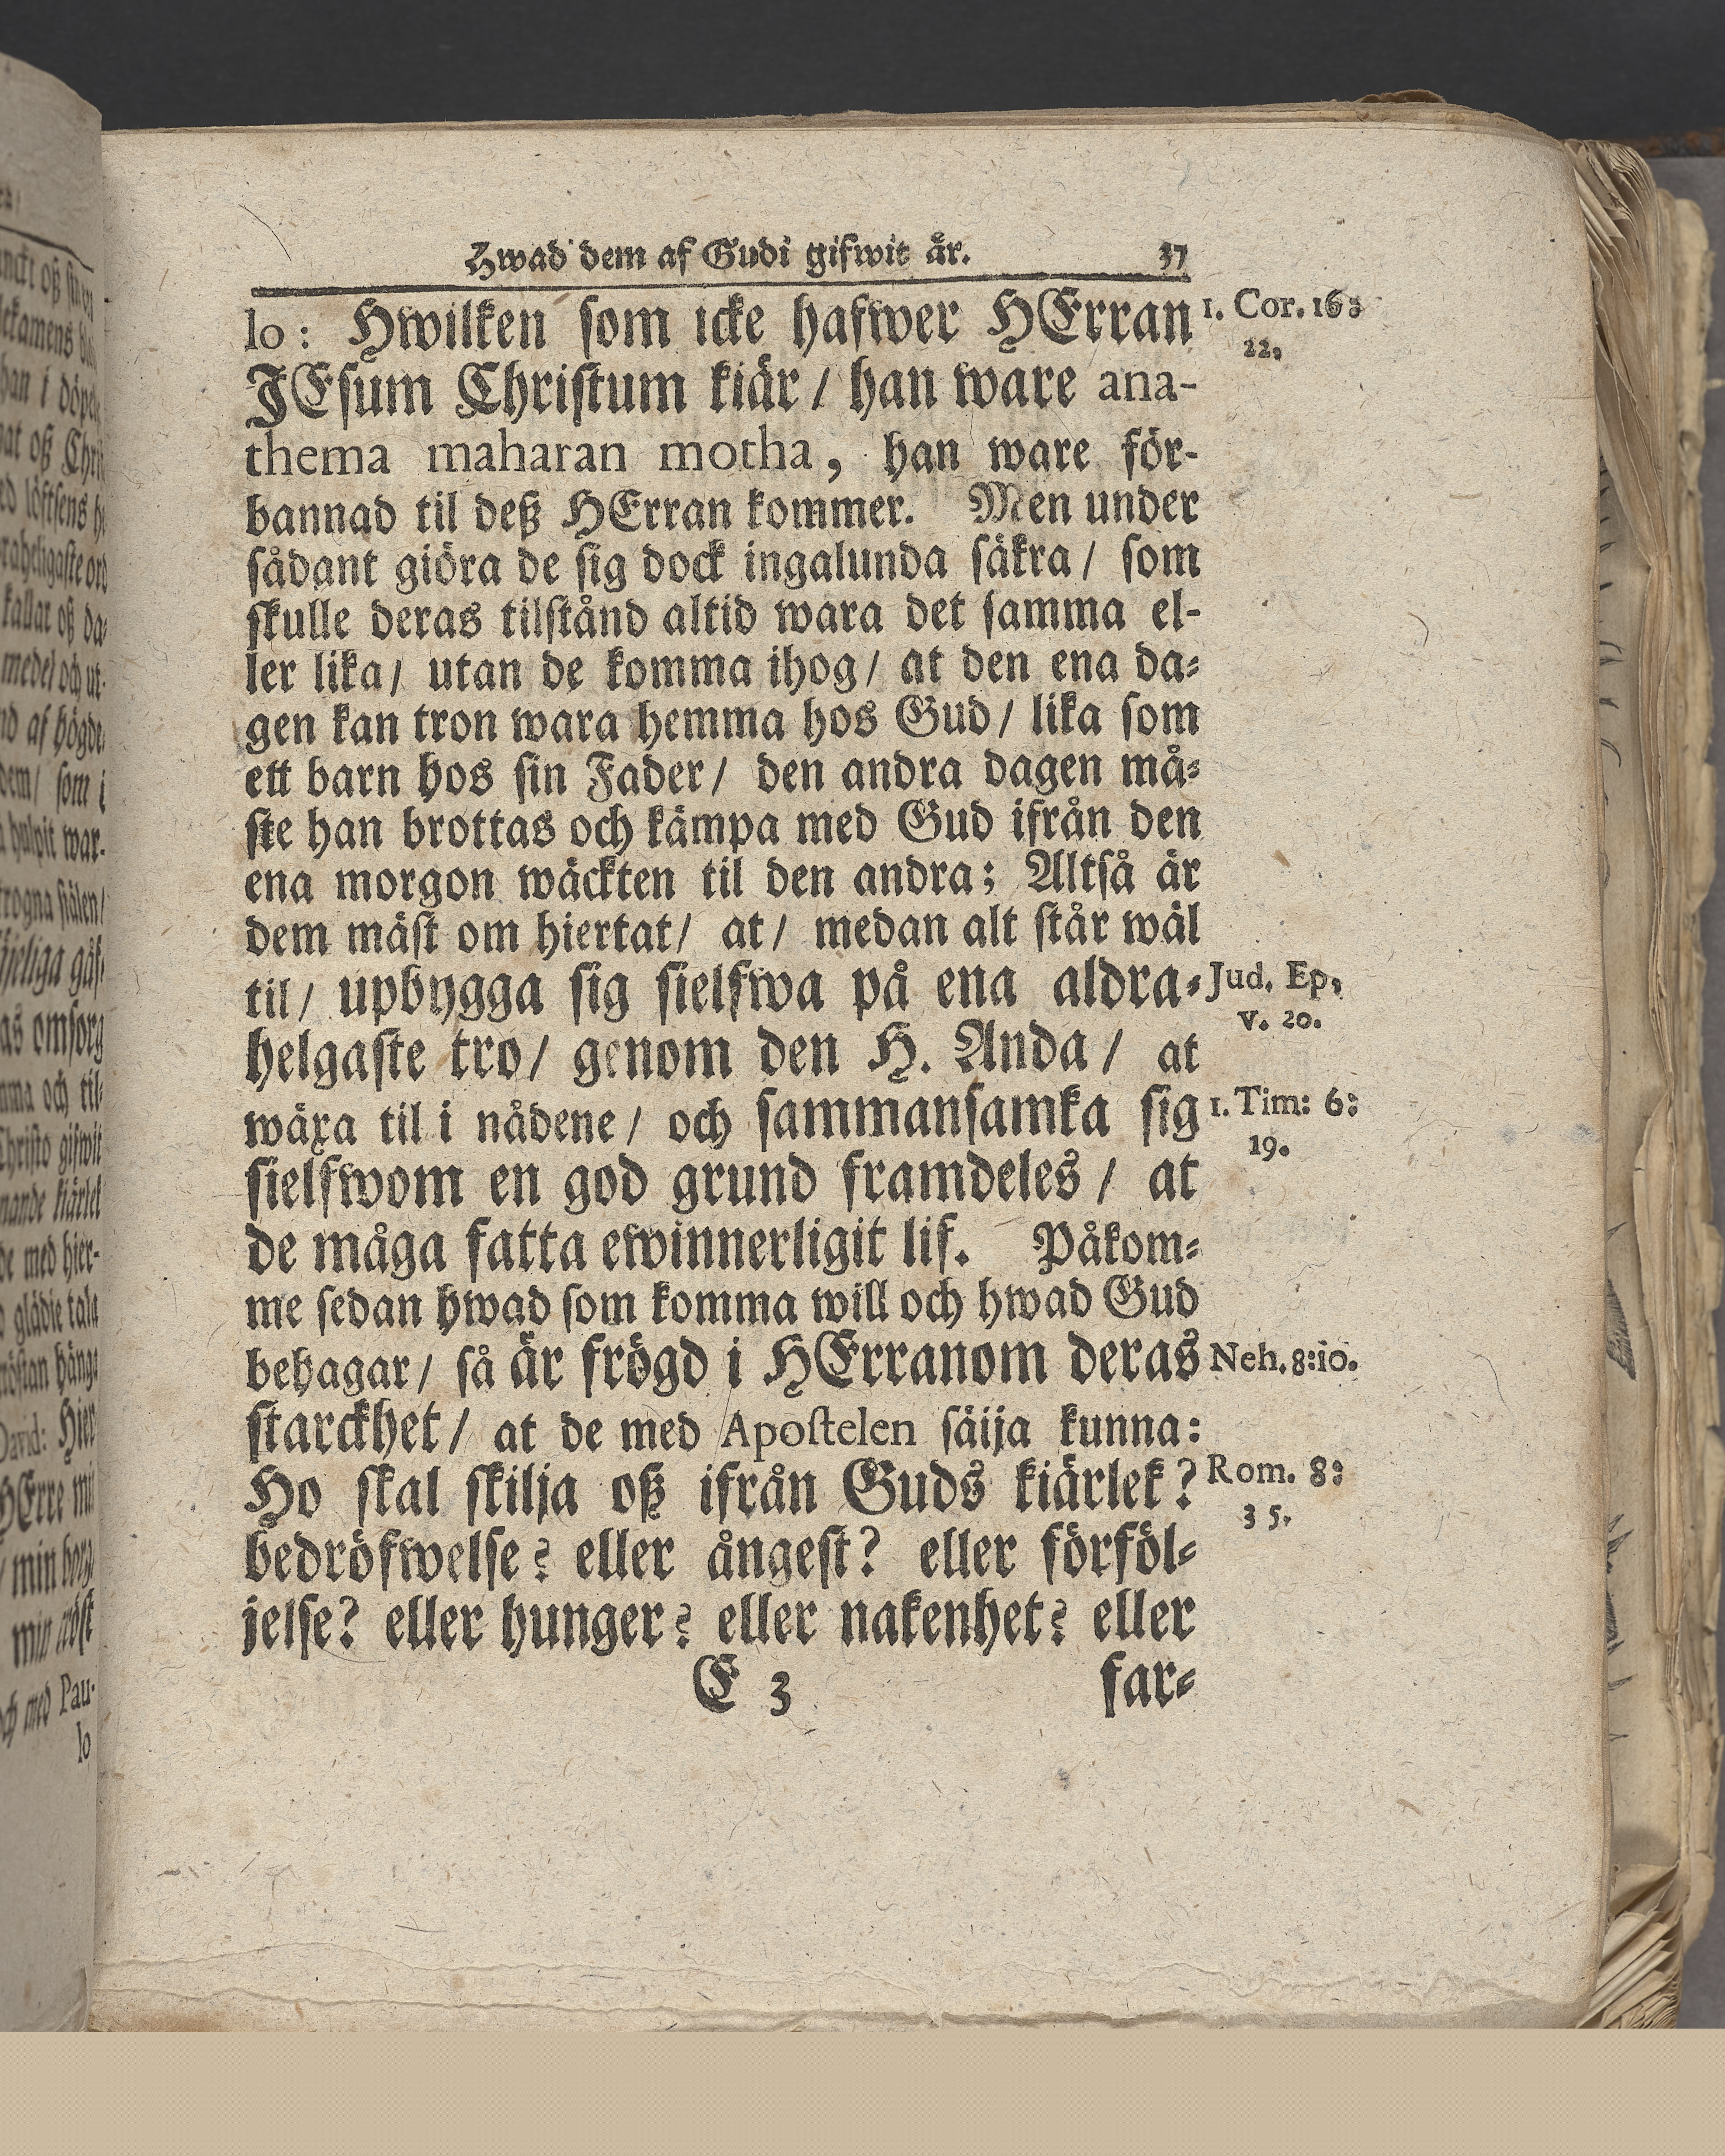 Hwad dem af Gudi gifwit är. 37
lo: Hwilken som icke hafwer HErran
1. Cor. 16:
22.
JEsum Christum kiär / han ware ana-
thema maharan motha, han ware för-
bannad til deß HErran kommer. Men under
sådant giöra de sig dock ingalunda säkra / som
skulle deras tilstånd altid wara det samma el-
ler lika / utan de komma ihog / at den ena da-
gen kan tron wara hemma hos Gud / lika som
ett barn hos sin Fader / den andra dagen må-
ste han brottas och kämpa med Gud ifrån den
ena morgon wäckten til den andra; Altså är
dem mäst om hiertat / at / medan alt står wäl
til / upbygga sig sielfwa på ena aldra-
Jud. Ep.
v. 20.
helgaste tro / genom den H. Anda / at
wäxa til i nådene / och sammansamka sig
1. Tim: 6:
19.
sielfwom en god grund framdeles / at
de måga fatta ewinnerligit lif. Påkom-
me sedan hwad som komma will och hwad Gud
behagar / så är frögd i HErranom deras
Neh. 8:10.
starckhet / at de med Apostelen säija kunna:
Ho skal skilja oß ifrån Guds kiärlek?
Rom. 8:
35.
bedröfwelse? eller ångest? eller förföl-
jelse? eller hunger? eller nakenhet? eller
E 3 far-